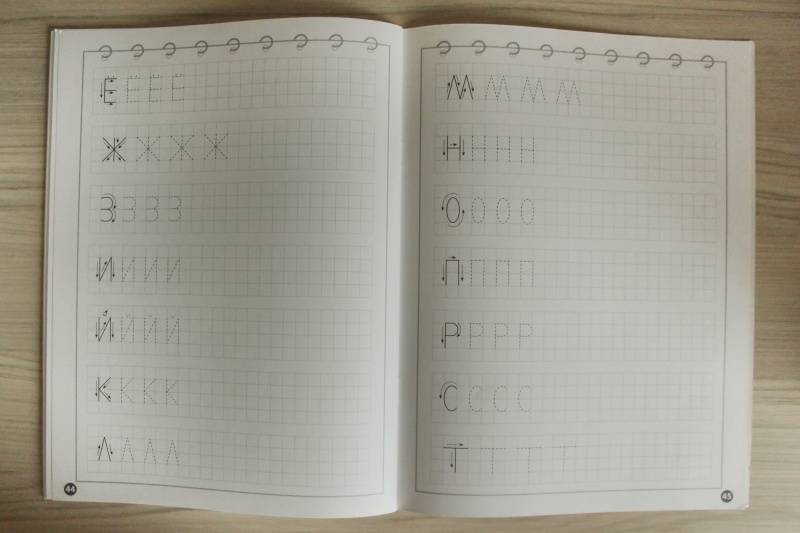 Ё Ё Ё Ё
Ж Ж Ж Ж
З З З З
И И И И
Й Й Й Й
К К К К
Л Л Л Л
44
М М М М
Н Н Н Н
О О О О
П П П П
Р Р Р Р
С С С С
Т Т Т Т
45